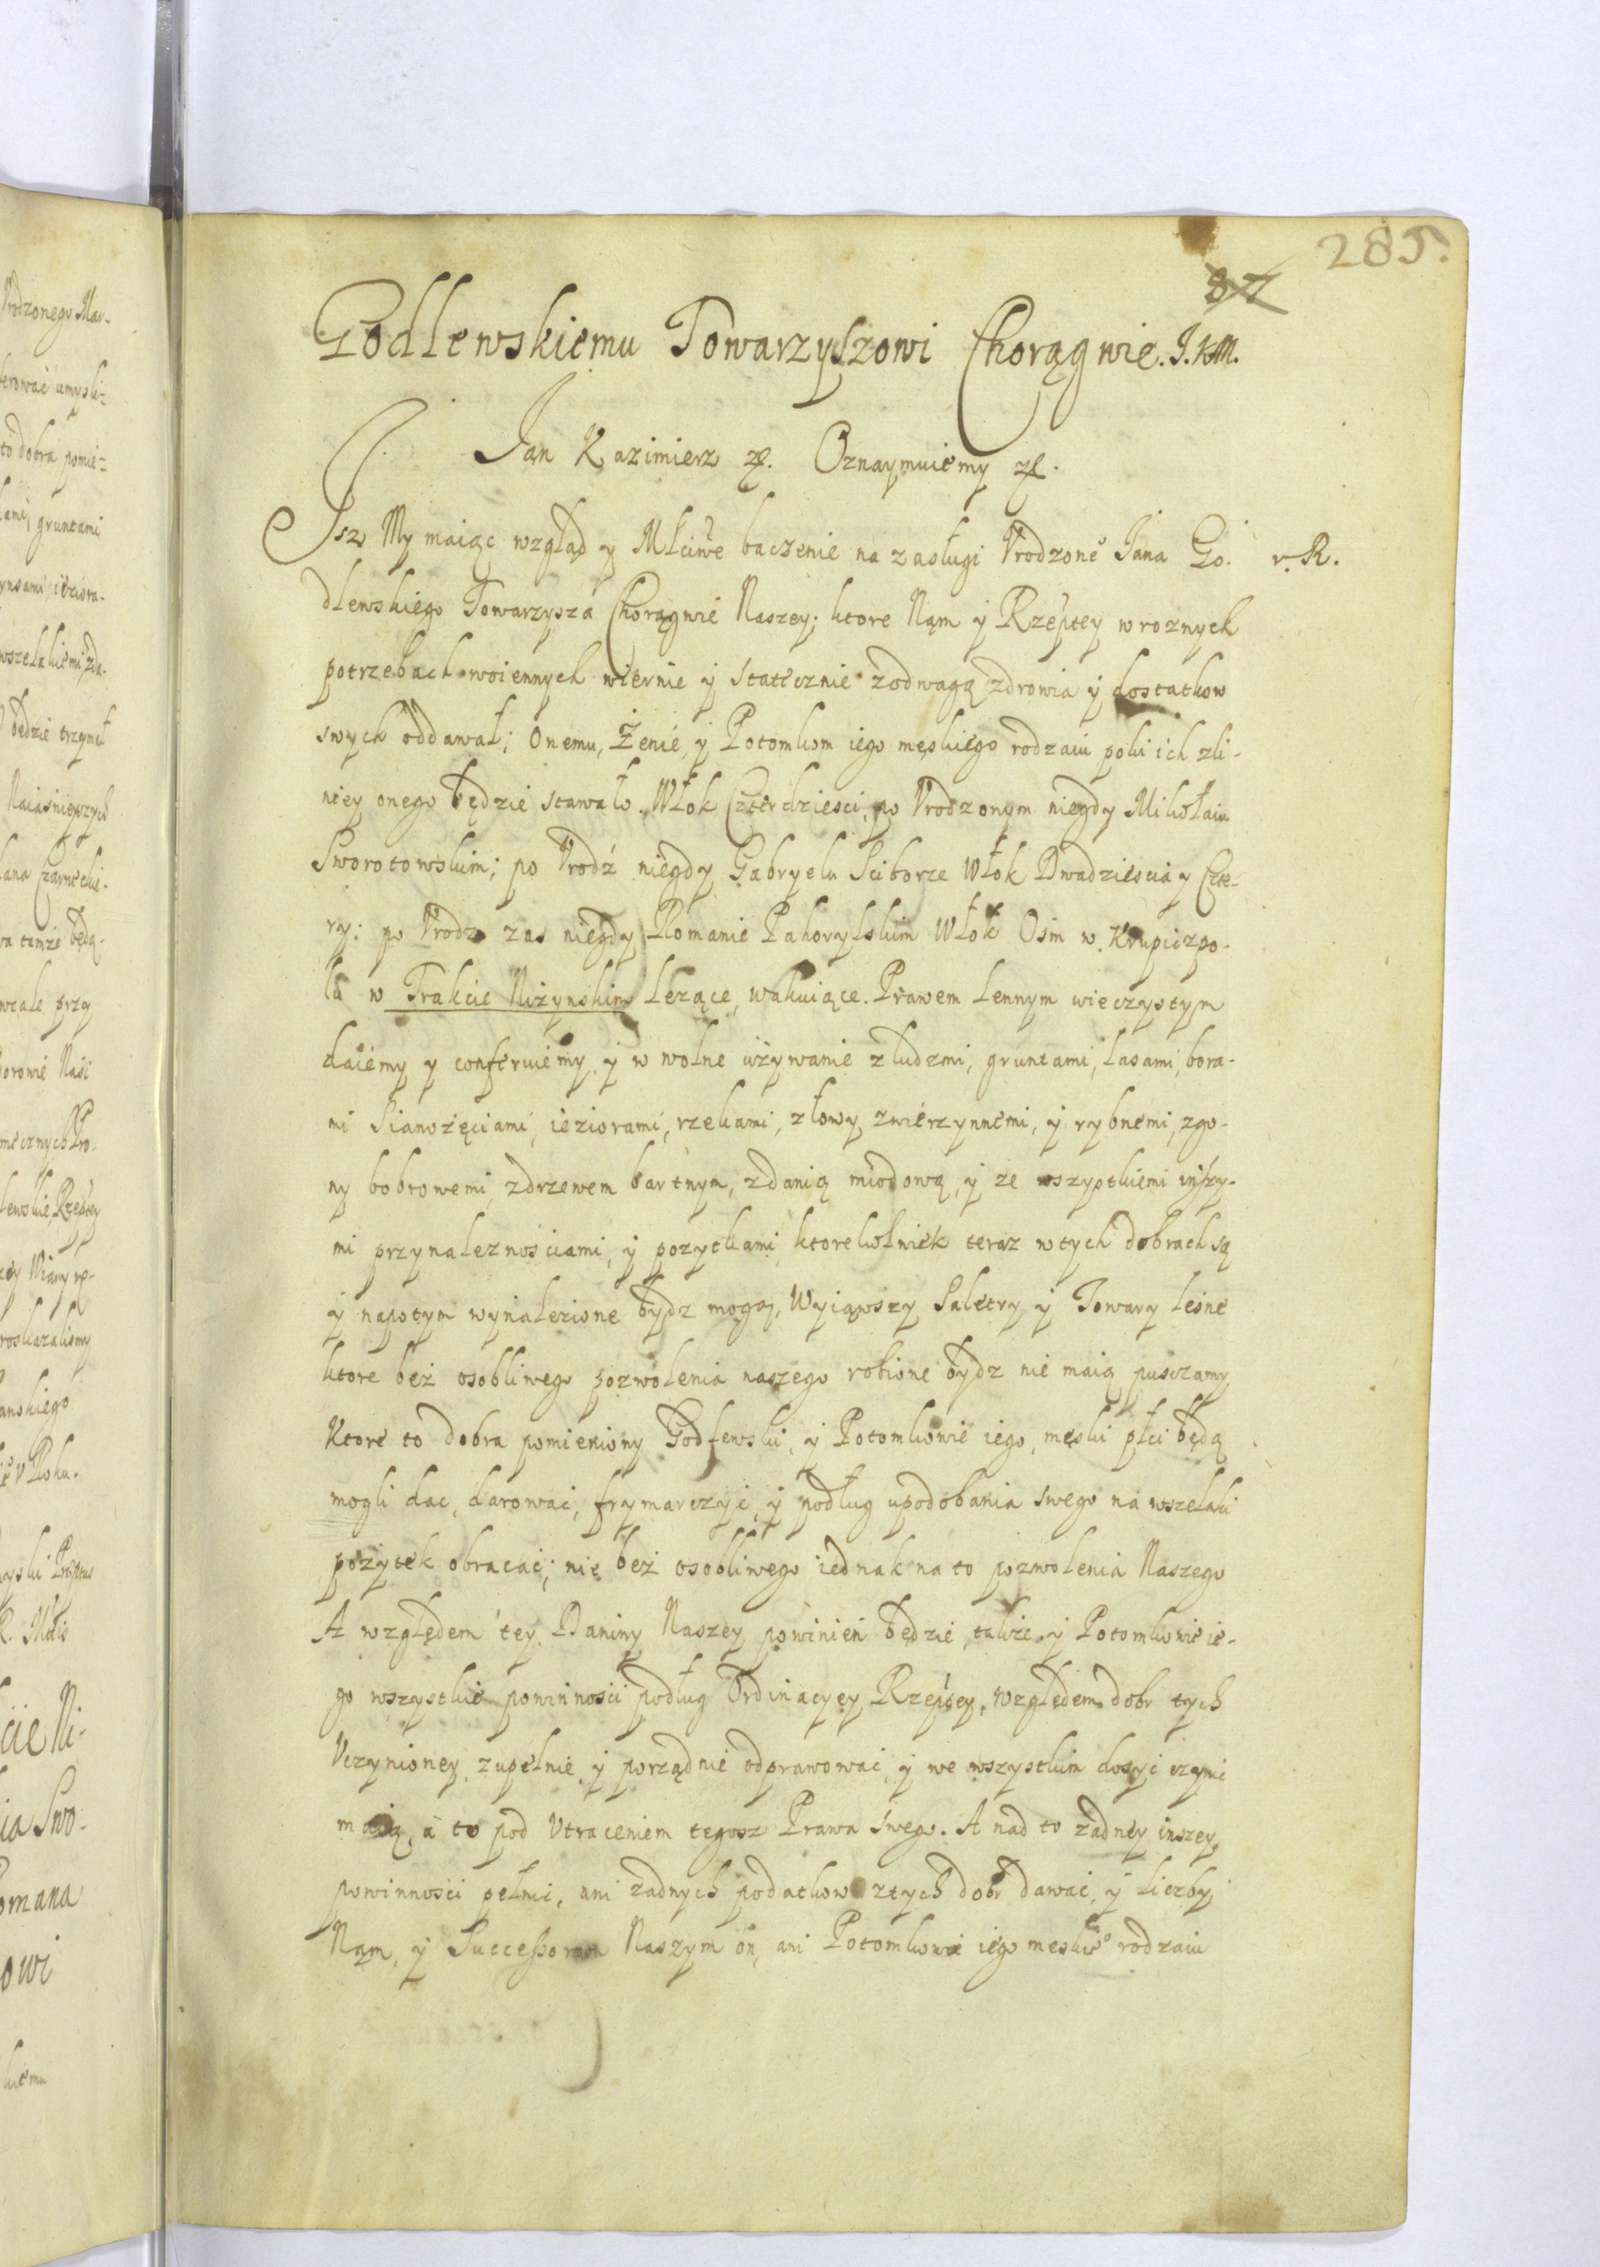 285.
87
Godlewskiemu Towarzyszowi Chorągwie. J.K.M.
Jan Kazimierz etc. Oznaymuiemy etc.
Jsz My maiąc wzgląd y Młciwe baczenie na zasługi Vrodzone° Jana Go- v. R.
dlewskiego Towarzysza Chorągwie Naszey; ktore Nąm y Rzeptey w roznych
potrzebach woiennych wiernie y statecznie zodwagą zdrowia y dostatkow
swych oddawał; Onemu, Żenie, y Potomkom iego męskiego rodzaiu poki ich zli-
niey onego będzie stawało. Włok Czterdziesci, po Vrodzonym niegdy Mikołaiu
Sworotowskim; po Vrodz niegdy Gabryelu Sciborze Włok Dwadziescia y Czte-
ry: po Vrodz zas niegdy Romanie Pahorylskim Włok Osm w Krupiczpo-
lu w Trakcie Niżynskim lezące, wakuiące. Prawem Lennym wieczystym
daiemy y conferuiemy y w wolne używanie zludzmi, gruntami, lasami, bora-
mi Sianożęciami, ieziorami, rzekami, złowy zwierzynnemi, y rybnemi, zgo-
ny bobrowemi, zdrzewem bartnym, zdanią miodową, y ze wszystkiemi inszy-
mi przynaleznościami, y pozytkami ktorekolwiek teraz wtych dobrach są
y napotym wynalezione bydz mogą, Wyiąwszy Saletry y Towary leśne
ktore beż osobliwego pozwolenia naszego robione bydz nie maią pusczamy
Ktore to dobra pomieniony Godlewski, y Potomkowie iego, męski płci będą
mogli dac, darować, frymarczyć, y podług upodobania swego na wszelaki
pożytek obracać; nie beż osobliwego iednak na to pozwolenia Naszego
A względem tey Daniny Naszey powinien będzie, także y Potomkowie ie-
go wszystkie powinności podług Ordinacyey Rzeptey, względem dobr tych
Vczynioney, zupełnie y porządnie odprawować, y we wszystkim dosyć czynić
maią, a to pod Vtraceniem tegosz Prawa swego. A nad to żadney inszey
powinności pełnic, ani żadnych podatkow ztych dobr dawać, y liczby
Nąm, y Successorom Naszym on, ani Potomkowie iego meskie° rodzaiu